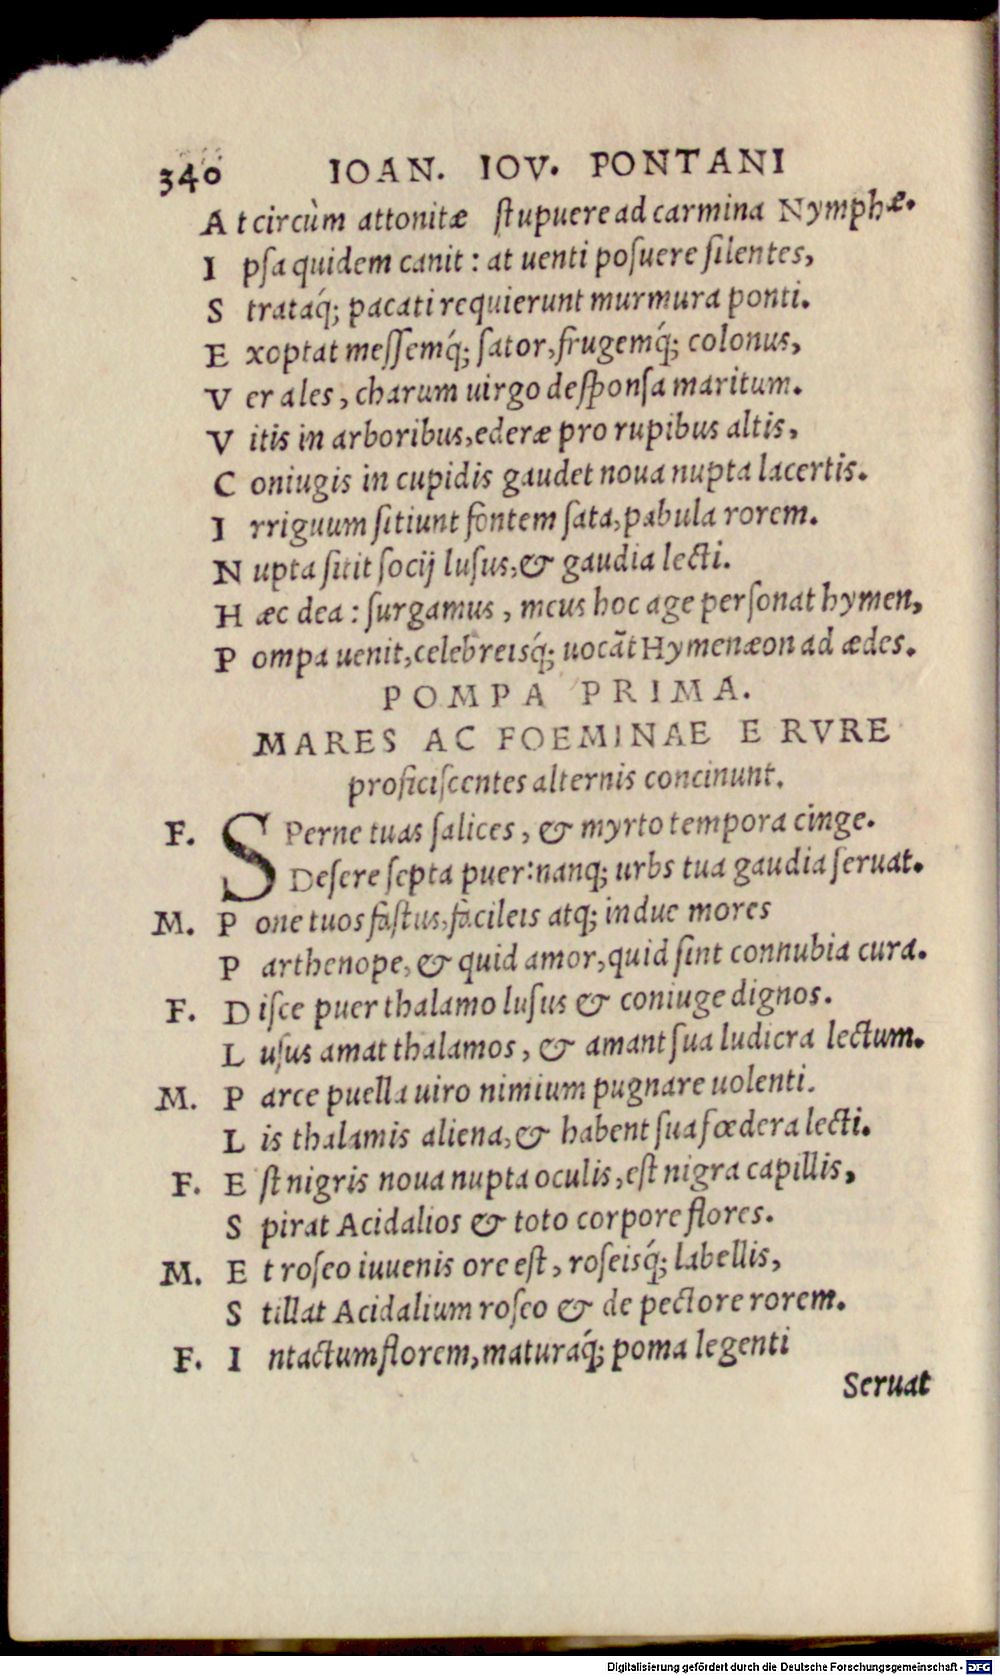 340 IOAN. IOV. PONTANI
A t circùm attonitæ stupuere ad carmina Nymphæ.
I psa quidem canit : at uenti posuere silentes,
S trataq́; pacati requierunt murmura ponti.
E xoptat messemq́; sator, frugemq́; colonus,
V er ales, charum uirgo desponsa maritum.
V itis in arboribus, ederæ pro rupibus altis,
C oniugis in cupidis gaudet noua nupta lacertis.
I rriguum sitiunt fontem sata, pabula rorem.
N upta sitit socij lusus, & gaudia lecti.
H æc dea : surgamus, meus hoc age personat hymen,
P ompa uenit, celebreisq́; uocãt Hymenæon ad ædes.
POMPA PRIMA.
MARES AC FOEMINAE E RVRE
proficiscentes alternis concinunt.
F. SPerne tuas salices, & myrto tempora cinge.
Desere septa puer: nanq; urbs tua gaudia seruat.
M. P one tuos fastus, facileis atq; indue mores
P arthenope, & quid amor, quid sint connubia cura.
F. D isce puer thalamo lusus & coniuge dignos.
L usus amat thalamos, & amant sua ludicra lectum.
M. P arce puella uiro nimium pugnare uolenti.
L is thalamis aliena, & habent sua fœdera lecti.
F. E st nigris noua nupta oculis, est nigra capillis,
S pirat Acidalios & toto corpore flores.
M. E t roseo iuuenis ore est, roseisq́; labellis,
S tillat Acidalium roseo & de pectore rorem.
F. I ntactum florem, maturaq́; poma legenti
Seruat
Digitalisierung gefördert durch die Deutsche Forschungsgemeinschaft - DFG